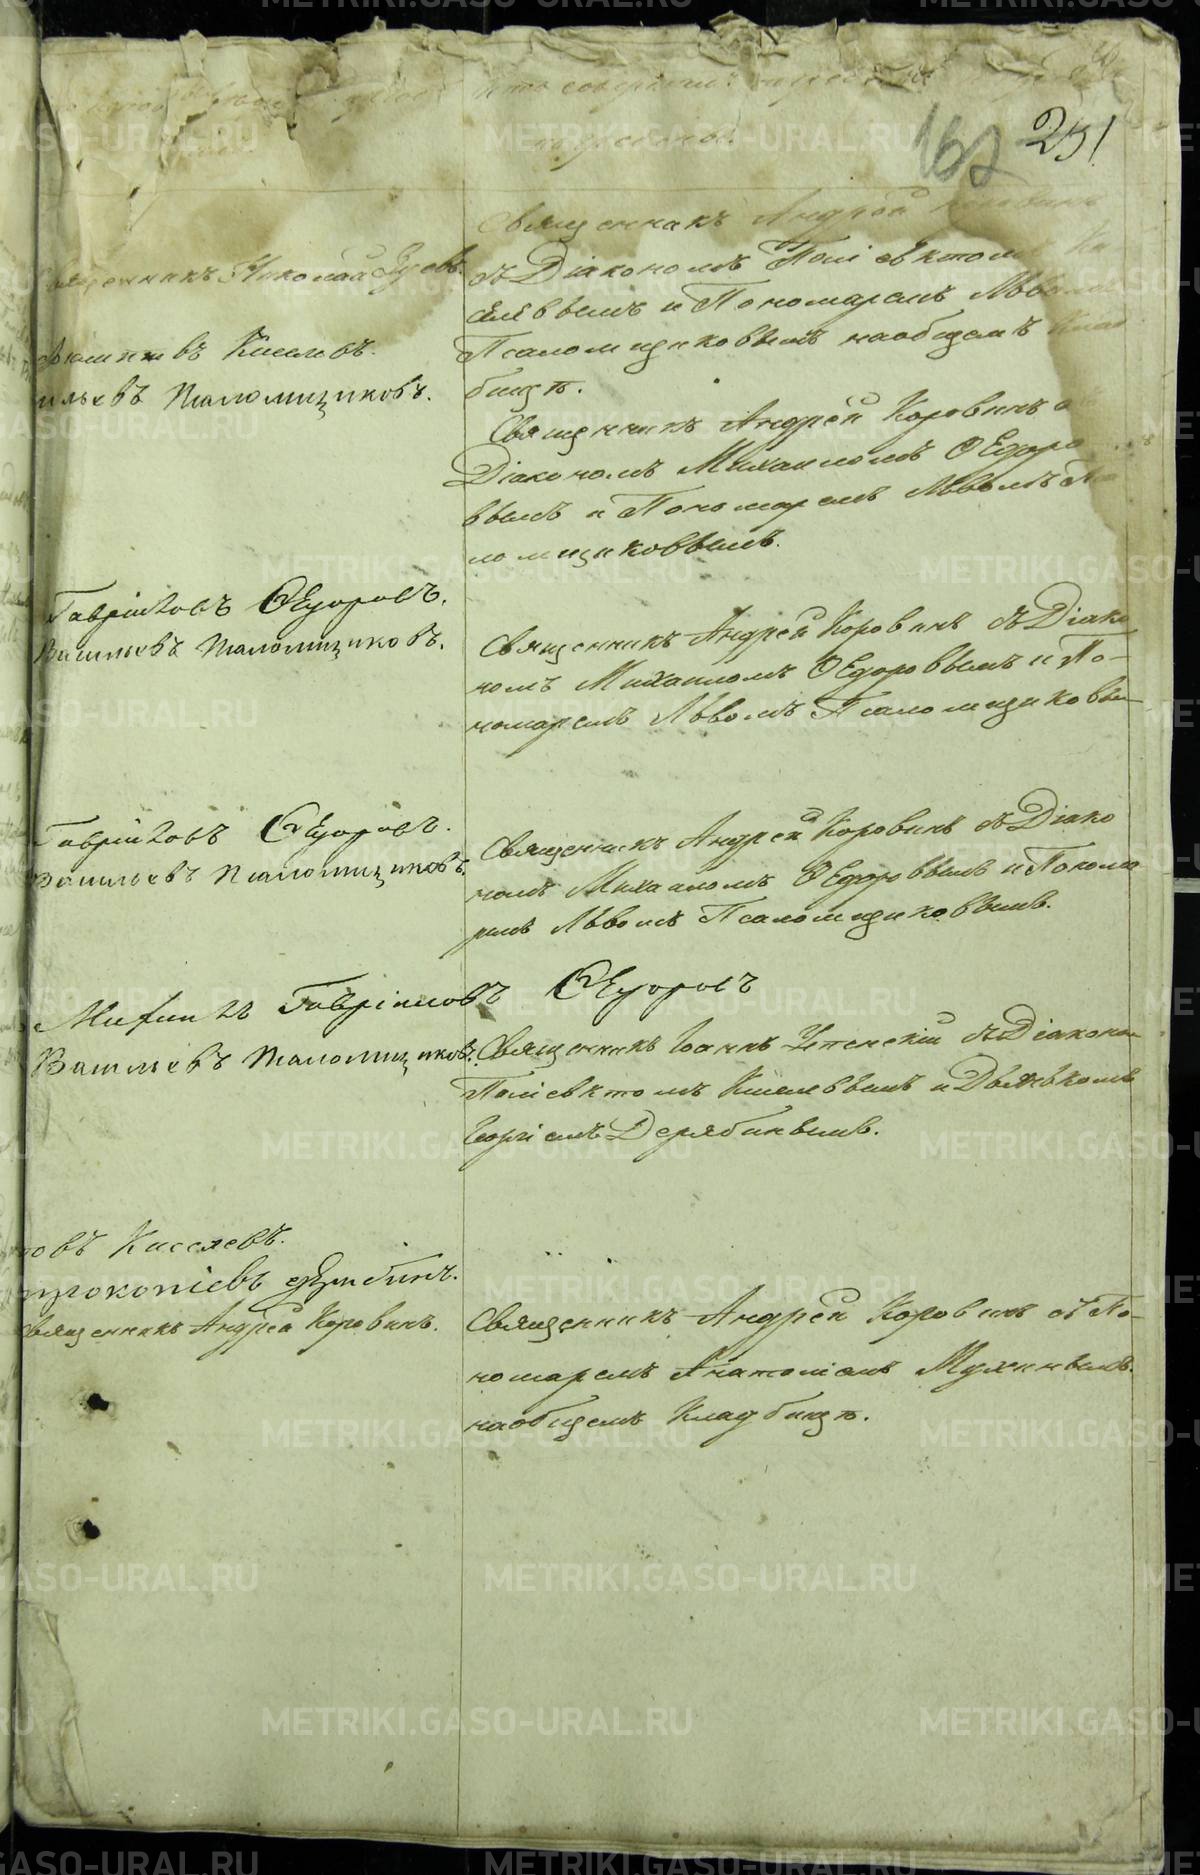 кто совершалъ
162 251
Священникъ Андрей Коровинъ
съ Діакономъ Поліевктомъ Ки
селевымъ и Пономаремъ Львомъ
Псаломщиковымъ на общемъ Клад
бищѣ.
Священникъ Николай Зуевъ.
Киселевъ.
ильевъ Псаломщиковъ.
Священникъ Андрей Коровинъ съ
Діакономъ Михаиломъ Ѳедоро
вымъ и Пономаремъ Львомъ Пса
ломщиковымъ.
Гавріиловъ Ѳедоровъ.
Васильевъ Псаломщиковъ.
Священникъ Андрей Коровинъ съ Діако
номъ Михаиломъ Ѳедоровымъ и По-
номаремъ Львомъ Псаломщиковы
Гавріиловъ Ѳедоровъ.
Васильевъ Псаломщиковъ.
Священникъ Андрей Коровинъ съ Діако
номъ Михаиломъ Ѳедоровымъ и Понома
ремъ Львомъ Псаломщиковымъ.
Михаилъ Гавріиловъ Ѳедоровъ
Васильевъ Псаломщиковъ.
Священникъ Іоаннъ Успенскій съ Діакономъ
Поліевктомъ Киселевымъ и Дьячкомъ
Георгіемъ Дерябинымъ.
товъ Киселевъ.
Прокопіевъ Дерябинъ.
Священникъ Андрей Коровинъ.
Священникъ Андрей Коровинъ съ По-
номаремъ Анатоліемъ Мухинымъ.
на общемъ Кладбищѣ.
METRIKI.GASO-URAL.RU